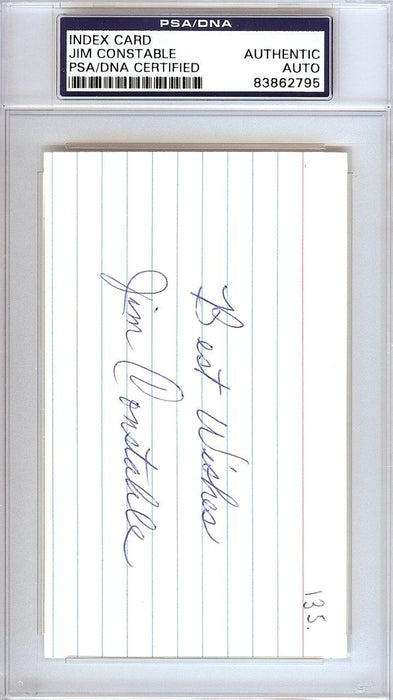 PSA/DNA
INDEX CARD
JIM CONSTABLE
PSA/DNA CERTIFIED
AUTHENTIC
AUTO
83862795
135.
Best Wishes
Jim Constable